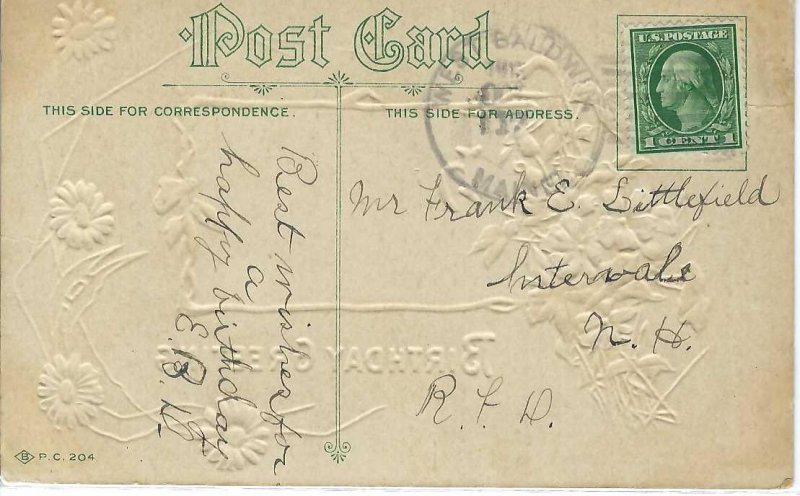 Post Card
THIS SIDE FOR CORRESPONDENCE.
THIS SIDE FOR ADDRESS.
U.S. POSTAGE
1 CENT 1
WEST BALDWIN
MAINE
Best wishes for
a
happy birthday
Mr Frank E. Littlefield
Intervale
N. H.
R. F. D.
BIRTHDAY GREETINGS
B P.C. 204